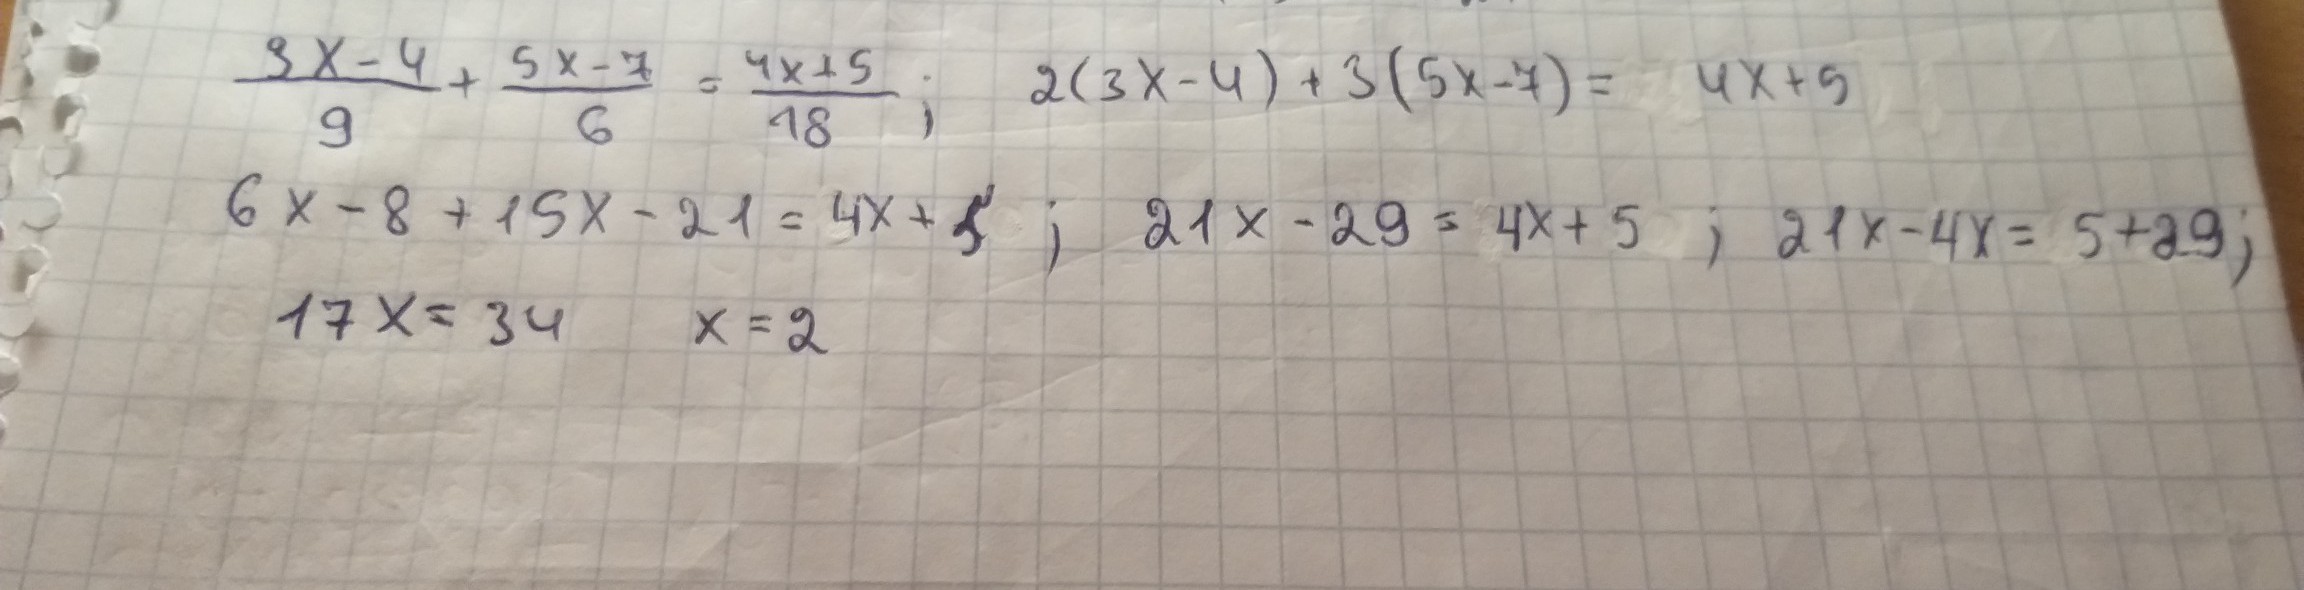 (3x-4)/9 + (5x-7)/6 = (4x+5)/18 ; 2(3x-4)+3(5x-7)= 4x+5
6x-8+15x-21=4x+5 ; 21x-29=4x+5 ; 21x-4x=5+29;
17x=34 x=2